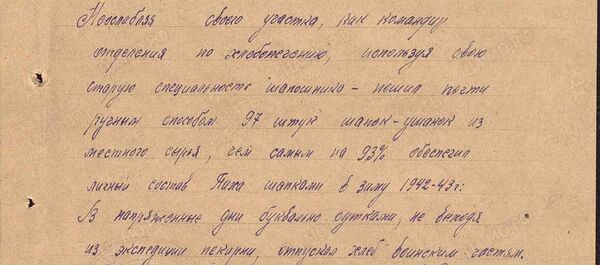 Неослабляя своего участка, как командир
отделения по хлебопечению, используя свою
старую специальность шапошника - пошил почти
ручным способом 97 штук шапок-ушанок из
местного сырья, чем самым на 93% обеспечил
личный состав Пиха шапками в зиму 1942-43 г:
В напряженные дни буквально сутками, не выходя
из экспедиции пекарни, отпускал хлеб воинским частям.